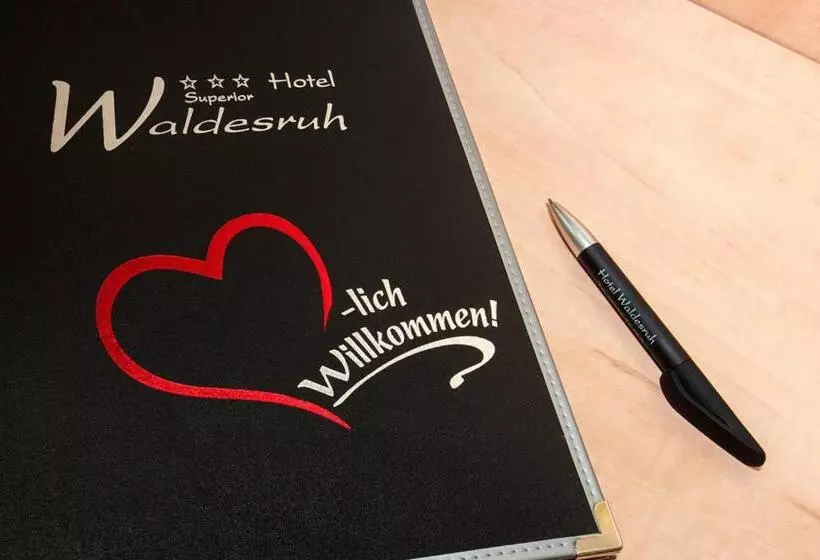 ☆☆☆ Hotel
Superior
Waldesruh
-lich
Willkommen!
Hotel Waldesruh